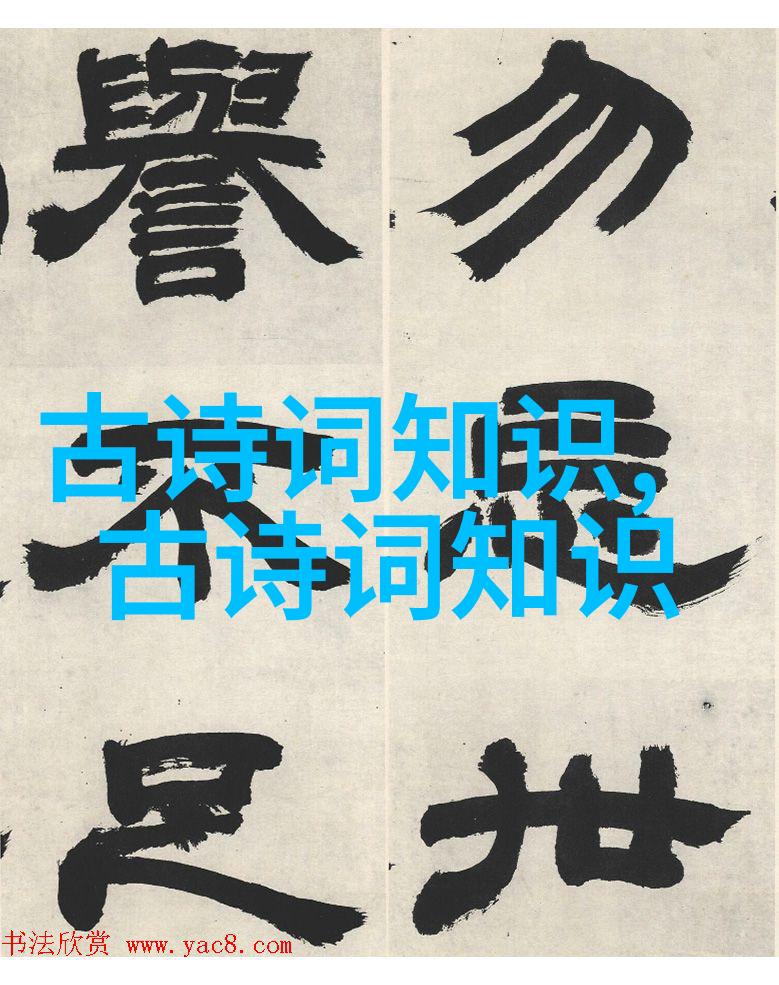 勿忘世
譽不足
古诗词知识,
古诗词知识
书法欣赏 www.yac8.com